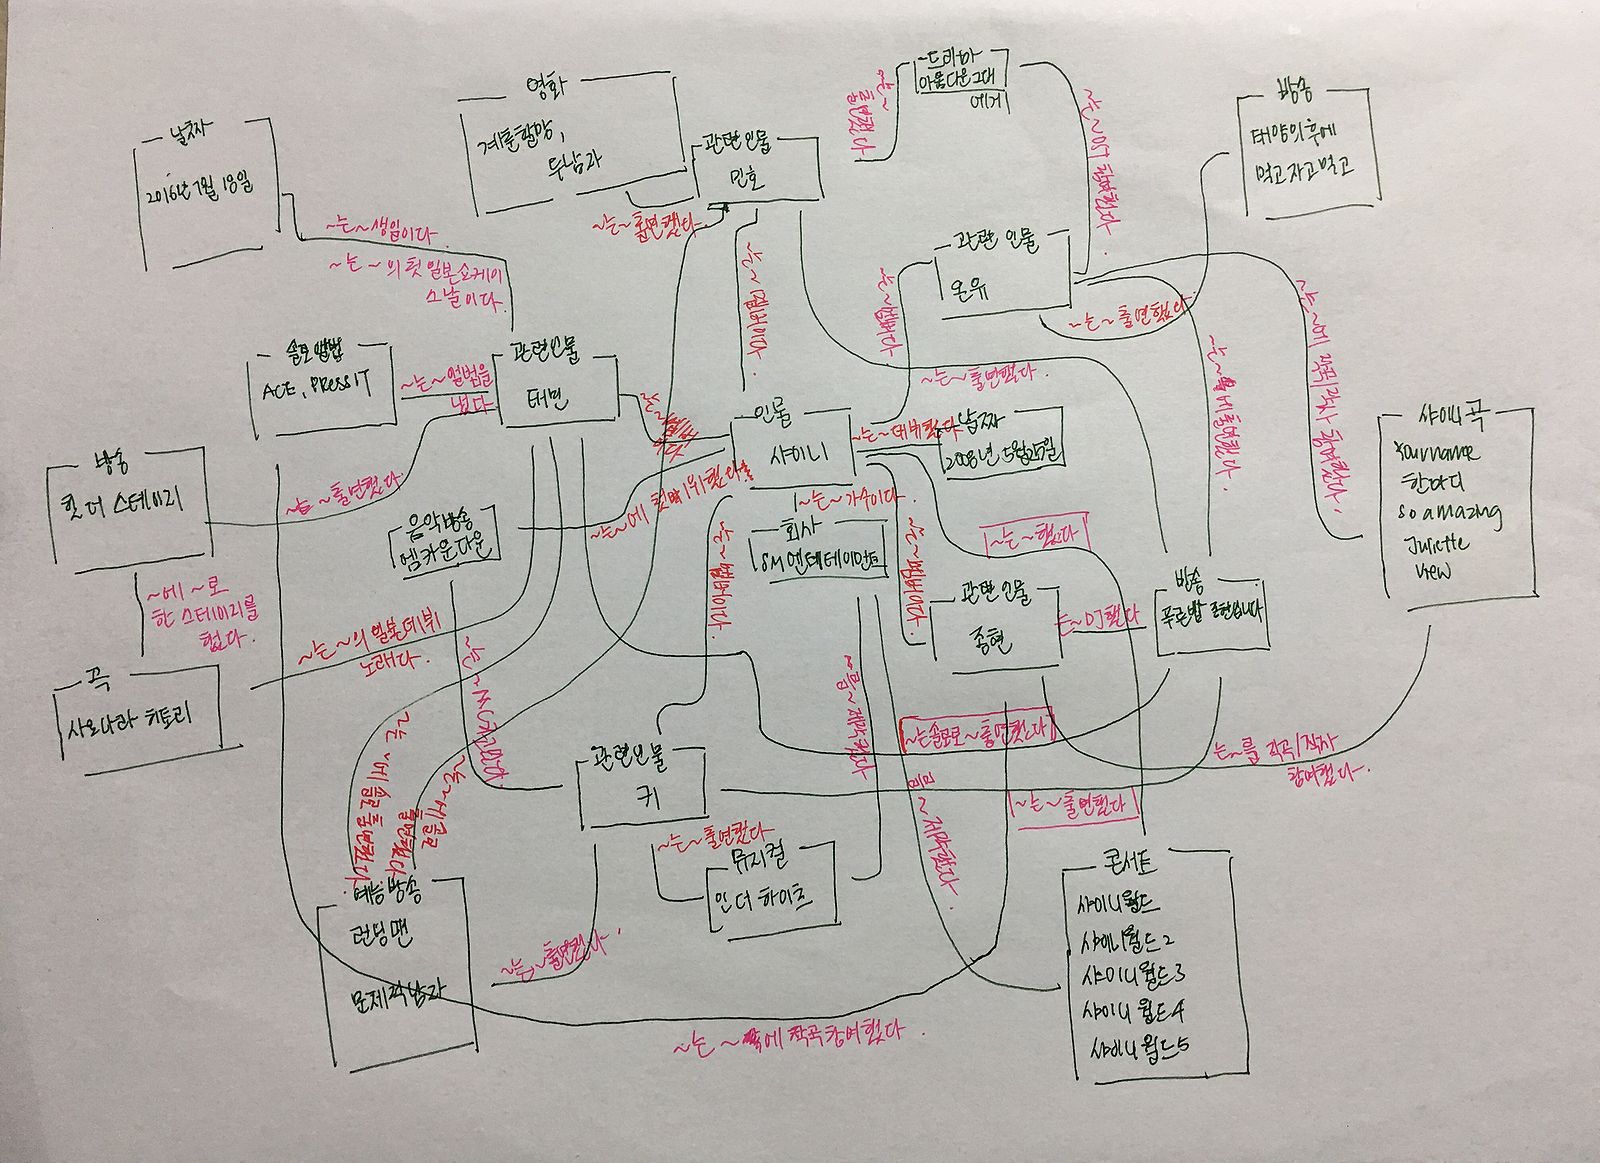 날짜
2016년 7월 18일
영화
계춘할망,
두남자
관련인물
민호
~드라마
아름다운그대
에게
방송
태양의후에
먹고자고먹고
~는~ 출연했다
~는~OST 참여했다
~는~출연했다.
~는~생일이다.
~는~의 첫 일본쇼케이
스날이다.
~는~멤버이다.
관련 인물
온유
~는~멤버다.
~는~출연했다.
~는~출연했다.
~는~에출연했다.
~는~에 작곡/작사 참여했다.
솔로앨범
ACE, PRESS IT
~는~앨범을
냈다
관련인물
태민
인물
샤이니
~는~데뷔했다
날짜
2008년 5월25일
샤이니 곡
Your name
한마디
so amazing
Juliette
view
방송
힛 더 스테이지
~는~출연했다.
음악방송
엠카운다운
~는~에 첫 1위했다
~는~가수이다.
회사
SM엔테테이먼트
~는~했다
~는~멤버이다.
~는~멤버이다.
~에 ~로
한 스테이지를
했다.
관련 인물
종현
~는~DJ했다
방송
푸른밤 종현입니다
곡
사요나라 히토리
~는~의 일본데뷔
노래다.
~는~MC
~는~에 솔로 출연했다.
~는~에 솔로
출연했다
~는솔로로~출연했다
~는~를 작곡/작사
참여했다.
관련인물
키
~는~출연했다
뮤지컬
인 더 하이츠
~는~출연했다
콘서트
샤이니월드
샤이니월드2
샤이니월드3
샤이니월드4
샤이니월드5
예능방송
런닝맨
문제적남자
~는~출연했다.
~는 ~에 작곡참여했다.